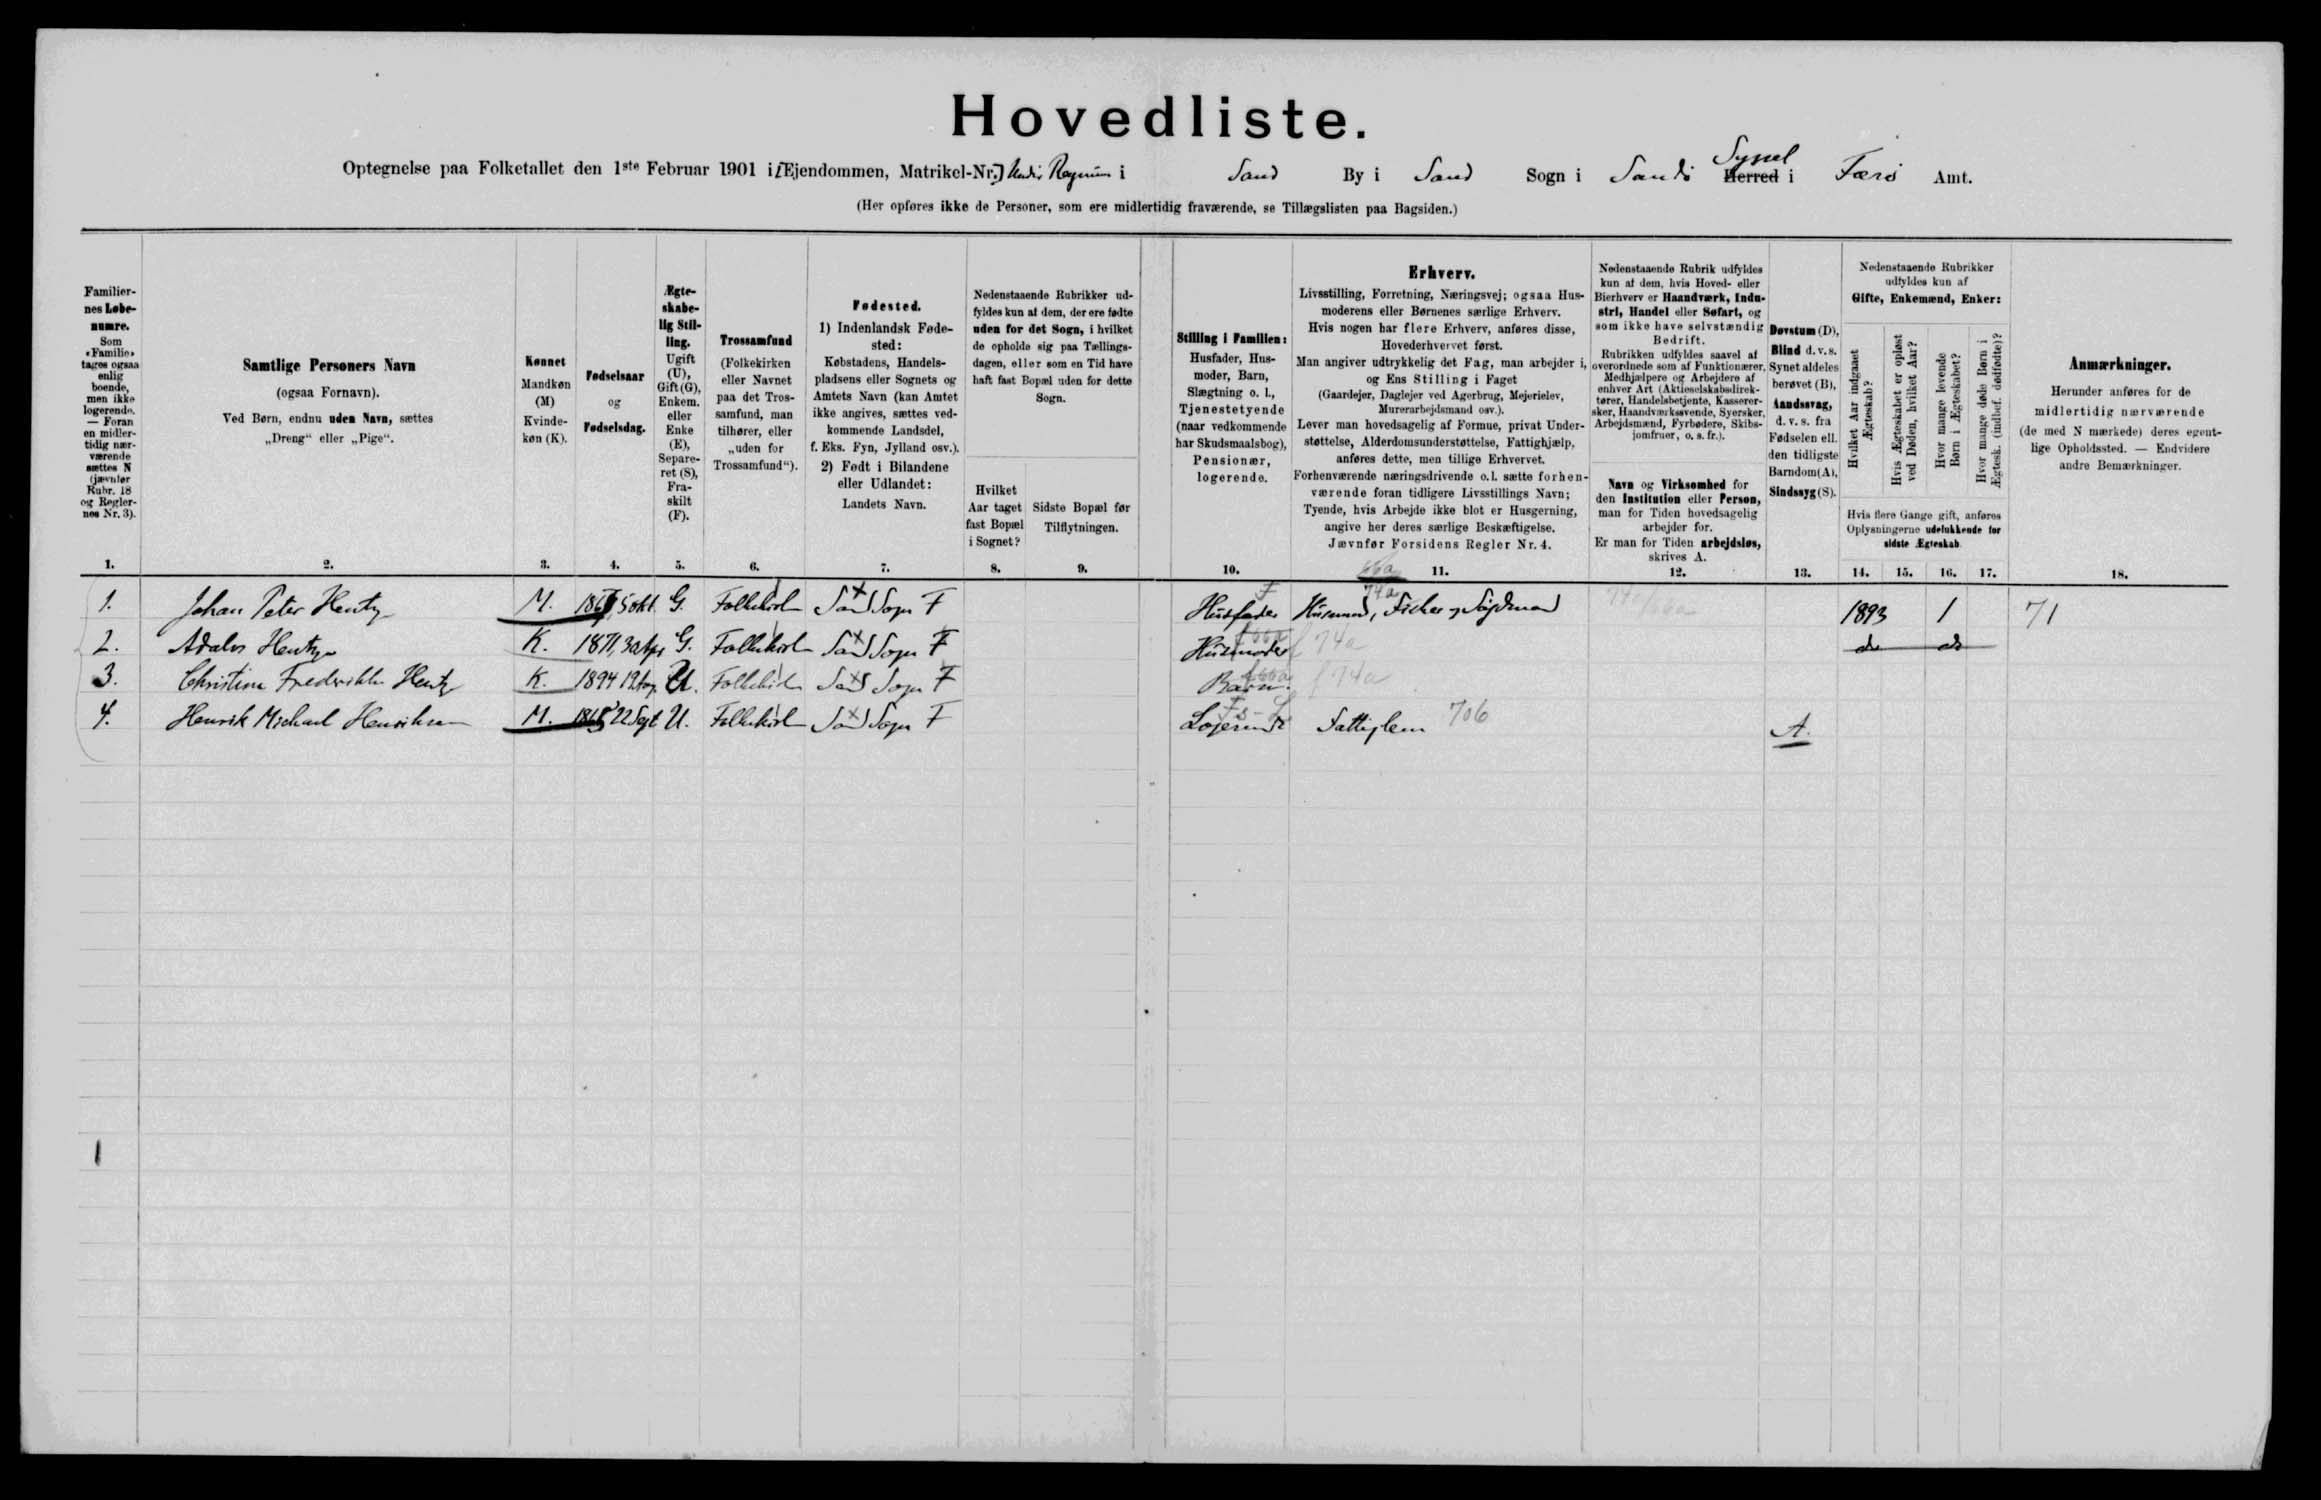 Hovedliste.
Optegnelse paa Folketallet den 1ste Februar 1901 i [Ejendommen, Matrikel-Nr.] i Sand By i Sand Sogn i Sandø Herred Syssel i Færø Amt.
(Her opføres ikke de Personer, som ere midlertidig fraværende, se Tillægslisten paa Bagsiden.)
Familier-
nes Løbe-
numre.
Som
«Familie»
tages ogsaa
enlig
boende,
men ikke
logerende.
— Foran
en midler-
tidig nær-
værende
sættes N
(jævnfør
Rubr. 18
og Regler-
nes Nr. 3).
1.
Samtlige Personers Navn
(ogsaa Fornavn).
Ved Børn, endnu uden Navn, sættes
„Dreng“ eller „Pige“.
2.
Kønnet
Mandkøn
(M)
Kvinde-
køn (K).
3.
Fødselsaar
og
Fødselsdag.
4.
Ægte-
skabe-
lig Stil-
ling.
Ugift
(U),
Gift (G),
Enkem.
eller
Enke
(E),
Separe-
ret (S),
Fra-
skilt
(F).
5.
Trossamfund
(Folkekirken
eller Navnet
paa det Tros-
samfund, man
tilhører, eller
„uden for
Trossamfund“).
6.
Fødested.
1) Indenlandsk Føde-
sted:
Købstadens, Handels-
pladsens eller Sognets og
Amtets Navn (kan Amtet
ikke angives, sættes ved-
kommende Landsdel,
f. Eks. Fyn, Jylland osv.).
2) Født i Bilandene
eller Udlandet:
Landets Navn.
7.
Nedenstaaende Rubrikker ud-
fyldes kun af dem, der ere fødte
uden for det Sogn, i hvilket
de opholde sig paa Tællings-
dagen, eller som en Tid have
haft fast Bopæl uden for dette
Sogn.
Hvilket
Aar taget
fast Bopæl
i Sognet?
8.
Sidste Bopæl før
Tilflytningen.
9.
Stilling i Familien:
Husfader, Hus-
moder, Barn,
Slægtning o. l.,
Tjenestetyende
(naar vedkommende
har Skudsmaalsbog),
Pensionær,
logerende.
10.
Erhverv.
Livsstilling, Forretning, Næringsvej; ogsaa Hus-
moderens eller Børnenes særlige Erhverv.
Hvis nogen har flere Erhverv, anføres disse,
Hovederhvervet først.
Man angiver udtrykkelig det Fag, man arbejder i,
og Ens Stilling i Faget
(Gaardejer, Daglejer ved Agerbrug, Mejerielev,
Murerarbejdsmand osv.).
Lever man hovedsagelig af Formue, privat Under-
støttelse, Alderdomsunderstøttelse, Fattighjælp,
anføres dette, men tillige Erhvervet.
Forhenværende næringsdrivende o.l. sætte forhen-
værende foran tidligere Livsstillings Navn;
Tyende, hvis Arbejde ikke blot er Husgerning,
angive her deres særlige Beskæftigelse.
Jævnfør Forsidens Regler Nr. 4.
11.
Nedenstaaende Rubrik udfyldes
kun af dem, hvis Hoved- eller
Bierhverv er Haandværk, Indu-
stri, Handel eller Søfart, og
som ikke have selvstændig
Bedrift.
Rubrikken udfyldes saavel af
overordnede som af Funktionærer,
Medhjælpere og Arbejdere af
enhver Art (Aktieselskabsdirek-
tører, Handelsbetjente, Kasserer-
sker, Haandværkssvende, Syersker,
Arbejdsmænd, Fyrbødere, Skibs-
jomfruer, o. s. fr.).
Navn og Virksomhed for
den Institution eller Person,
man for Tiden hovedsagelig
arbejder for.
Er man for Tiden arbejdsløs,
skrives A.
12.
Døvstum (D),
Blind d. v. s.
Synet aldeles
berøvet (B),
Aandssvag,
d. v. s. fra
Fødselen ell.
den tidligste
Barndom (A),
Sindssyg (S).
13.
Nedenstaaende Rubrikker
udfyldes kun af
Gifte, Enkemænd, Enker:
Hvilket Aar indgaaet
Ægteskab?
Hvis Ægteskabet er opløst
ved Døden, hvilket Aar?
Hvor mange levende
Børn i Ægteskabet?
Hvor mange døde Børn i
Ægtesk. (indbef. dødfødte)?
Hvis flere Gange gift, anføres
Oplysningerne udelukkende for
sidste Ægteskab
14. 15. 16. 17.
Anmærkninger.
Herunder anføres for de
midlertidig nærværende
(de med N mærkede) deres egent-
lige Opholdssted. — Endvidere
andre Bemærkninger.
18.
66a
74a
1. Johan Peter Hentze M. 5 okt. G. Folkekirk Sand Sogn F Husfader F Husmand, Fisker 1893 1 71
2. Hentze K. 1871, 3 G. Folkekirk Sand Sogn F Husmoder f 66a f 74a do do
3. Christine Frederikke Hentze K. 1894 U. Folkekirk Sand Sogn F Barn f 66a f 74a
4. Henrik Michael Henriksen M. 22 Sept U. Folkekirk Sand Sogn F Logerende Fattiglem 706 A.
1